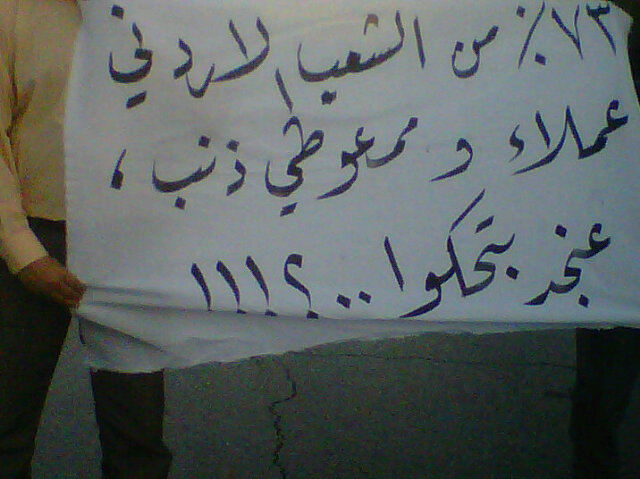 ٧٣٪ من الشعب الاردني
عملاء و ممعوطي ذنب ،
عنجد بتحكوا ..؟!!!